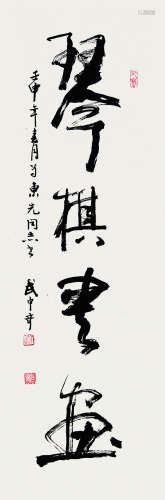 琴棋書畫
壬申年春月为東元同志书
武中奇